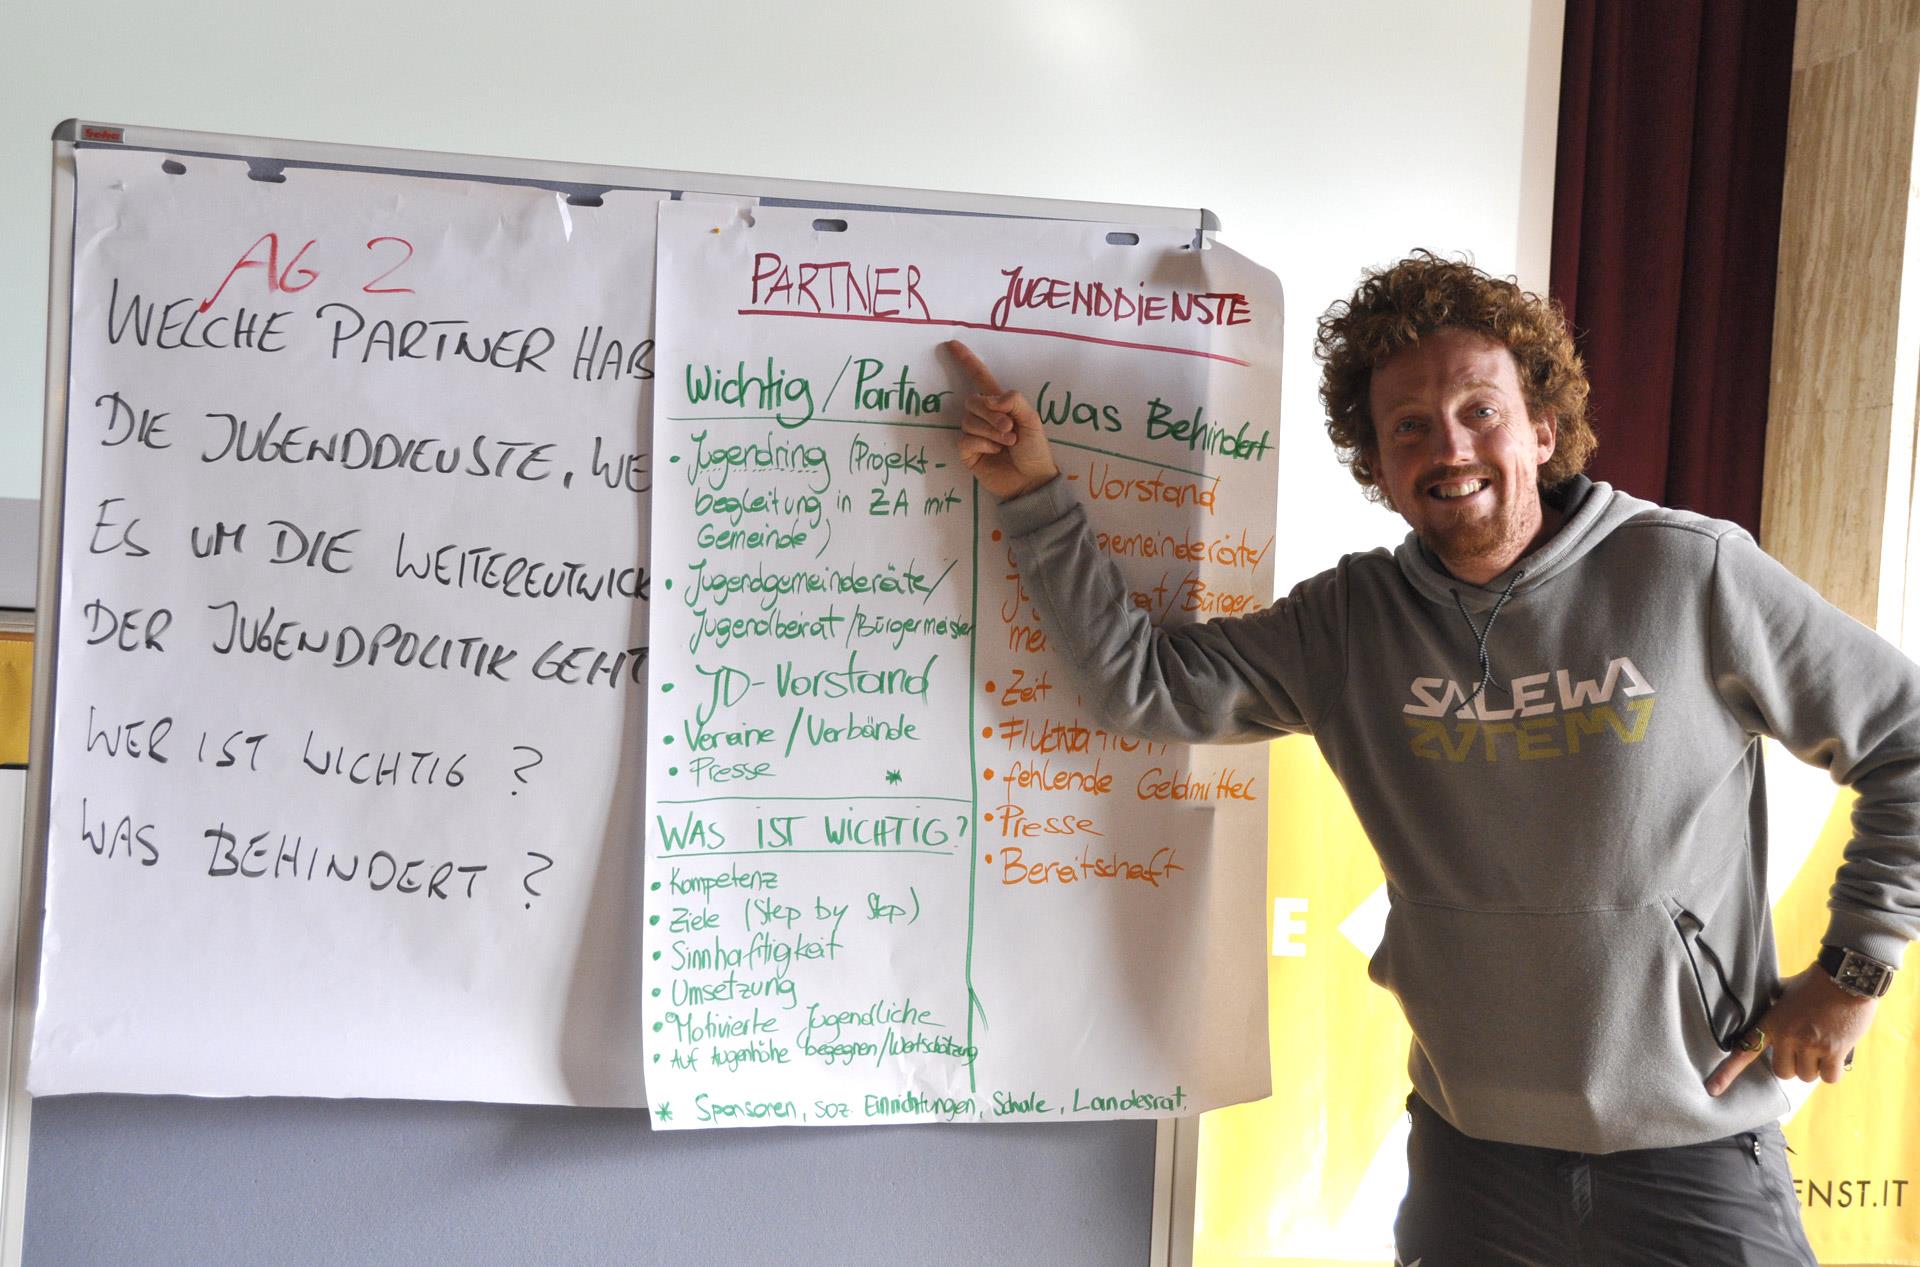 AG 2
WELCHE PARTNER HAB
DIE JUGENDDIENSTE, WE
ES UM DIE WEITERENTWICK
DER JUGENDPOLITIK GEHT
WER IST WICHTIG ?
WAS BEHINDERT ?
PARTNER JUGENDDIENSTE
Wichtig / Partner
• Jugendring (Projekt-
begleitung in ZA mit
Gemeinde)
• Jugendgemeinderäte/
Jugendbeirat/Bürgermeister
• JD-Vorstand
• Vereine / Verbände
• Presse *
WAS IST WICHTIG?
• Kompetenz
• Ziele (Step by Step)
• Sinnhaftigkeit
• Umsetzung
• Motivierte Jugendliche
• Auf Augenhöhe begegnen/Wertschätzung
* Sponsoren, soz. Einrichtungen, Schule, Landesrat.
Was Behindert
- Vorstand
• gemeinderäte/
at/Bürger-
me
• Zeit
• Fluktuation
• fehlende Geldmittel
• Presse
• Bereitschaft
SALEWA
E
ENST.IT